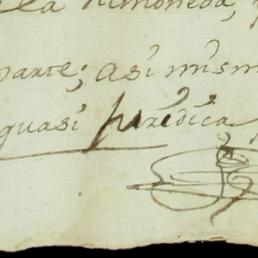 la Almoneda,
parte; asi mism
quasi juridica